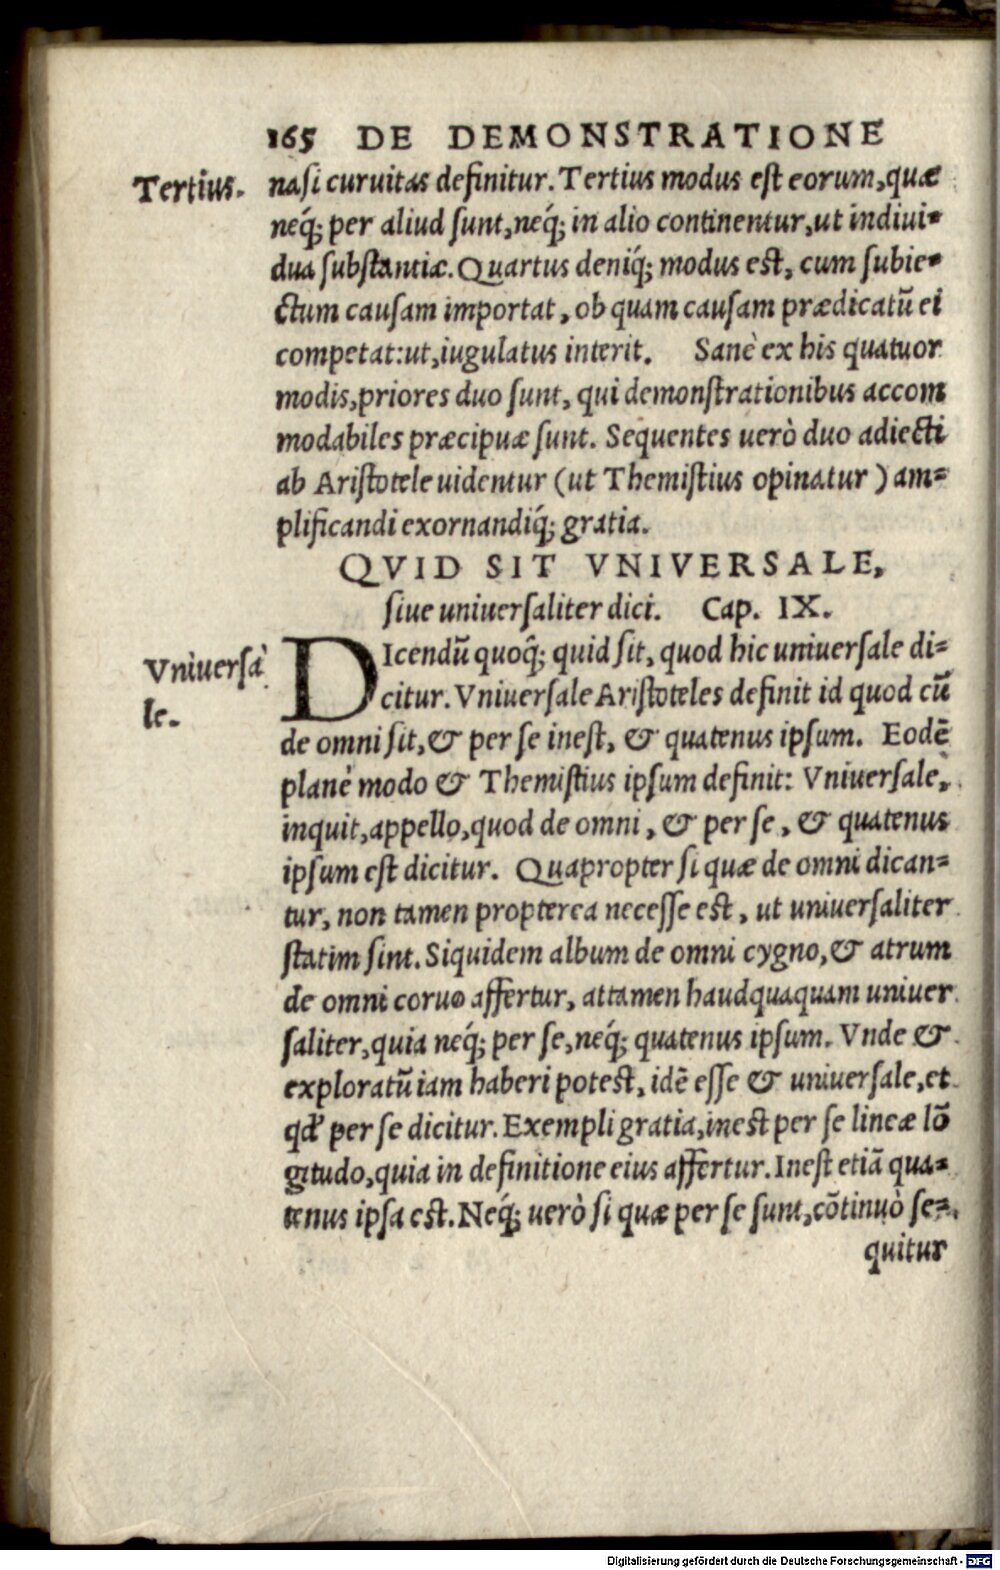 165 DE DEMONSTRATIONE
Tertius.
nasi curuitas definitur. Tertius modus est eorum, quæ
neq́; per aliud sunt, neq́; in alio continentur, ut indiui-
dua substantiæ. Quartus deniq́; modus est, cum subie-
ctum causam importat, ob quam causam prædicatũ ei
competat: ut, iugulatus interit. Sanè ex his quatuor
modis, priores duo sunt, qui demonstrationibus accom
modabiles præcipuæ sunt. Sequentes uerò duo adiecti
ab Aristotele uidentur (ut Themistius opinatur) am-
plificandi exornandiq́; gratia.
QVID SIT VNIVERSALE,
siue uniuersaliter dici. Cap. IX.
Vniuersa
le.
DIcendũ quoq̃; quid sit, quod hic uniuersale di-
citur. Vniuersale Aristoteles definit id quod cũ
de omni sit, & per se inest, & quatenus ipsum. Eodẽ
planè modo & Themistius ipsum definit: Vniuersale,
inquit, appello, quod de omni, & per se, & quatenus
ipsum est dicitur. Quapropter si quæ de omni dican-
tur, non tamen propterea necesse est, ut uniuersaliter
statim sint. Siquidem album de omni cygno, & atrum
de omni coruo affertur, attamen haudquaquam uniuer
saliter, quia neq́; per se, neq́; quatenus ipsum. Vnde &
exploratũ iam haberi potest, idẽ esse & uniuersale, et
qđ per se dicitur. Exempli gratia, inest per se lineæ lõ
gitudo, quia in definitione eius affertur. Inest etiã qua-
tenus ipsa est. Neq́; uerò si quæ per se sunt, cõtinuò se-
quitur
Digitalisierung gefördert durch die Deutsche Forschungsgemeinschaft - DFG